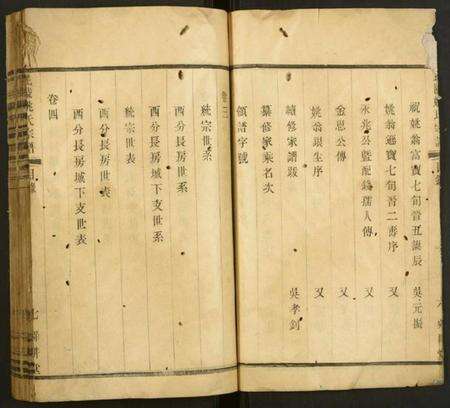 祝姚翁富寶七旬暨丑誕辰 吳元撫
姚翁遜寶七旬晉二壽序 又
永兆公暨配錢孺人傳 又
金恩公傳 又
姚翁硯生序 又
續修家譜跋 吳孝釗
纂修家乘名次
領譜字號
卷三
統宗世系
西分長房世系
西分長房城下支世系
統宗世表
西分長房世表
西分長房城下支世表
卷四
姚氏宗譜 目錄